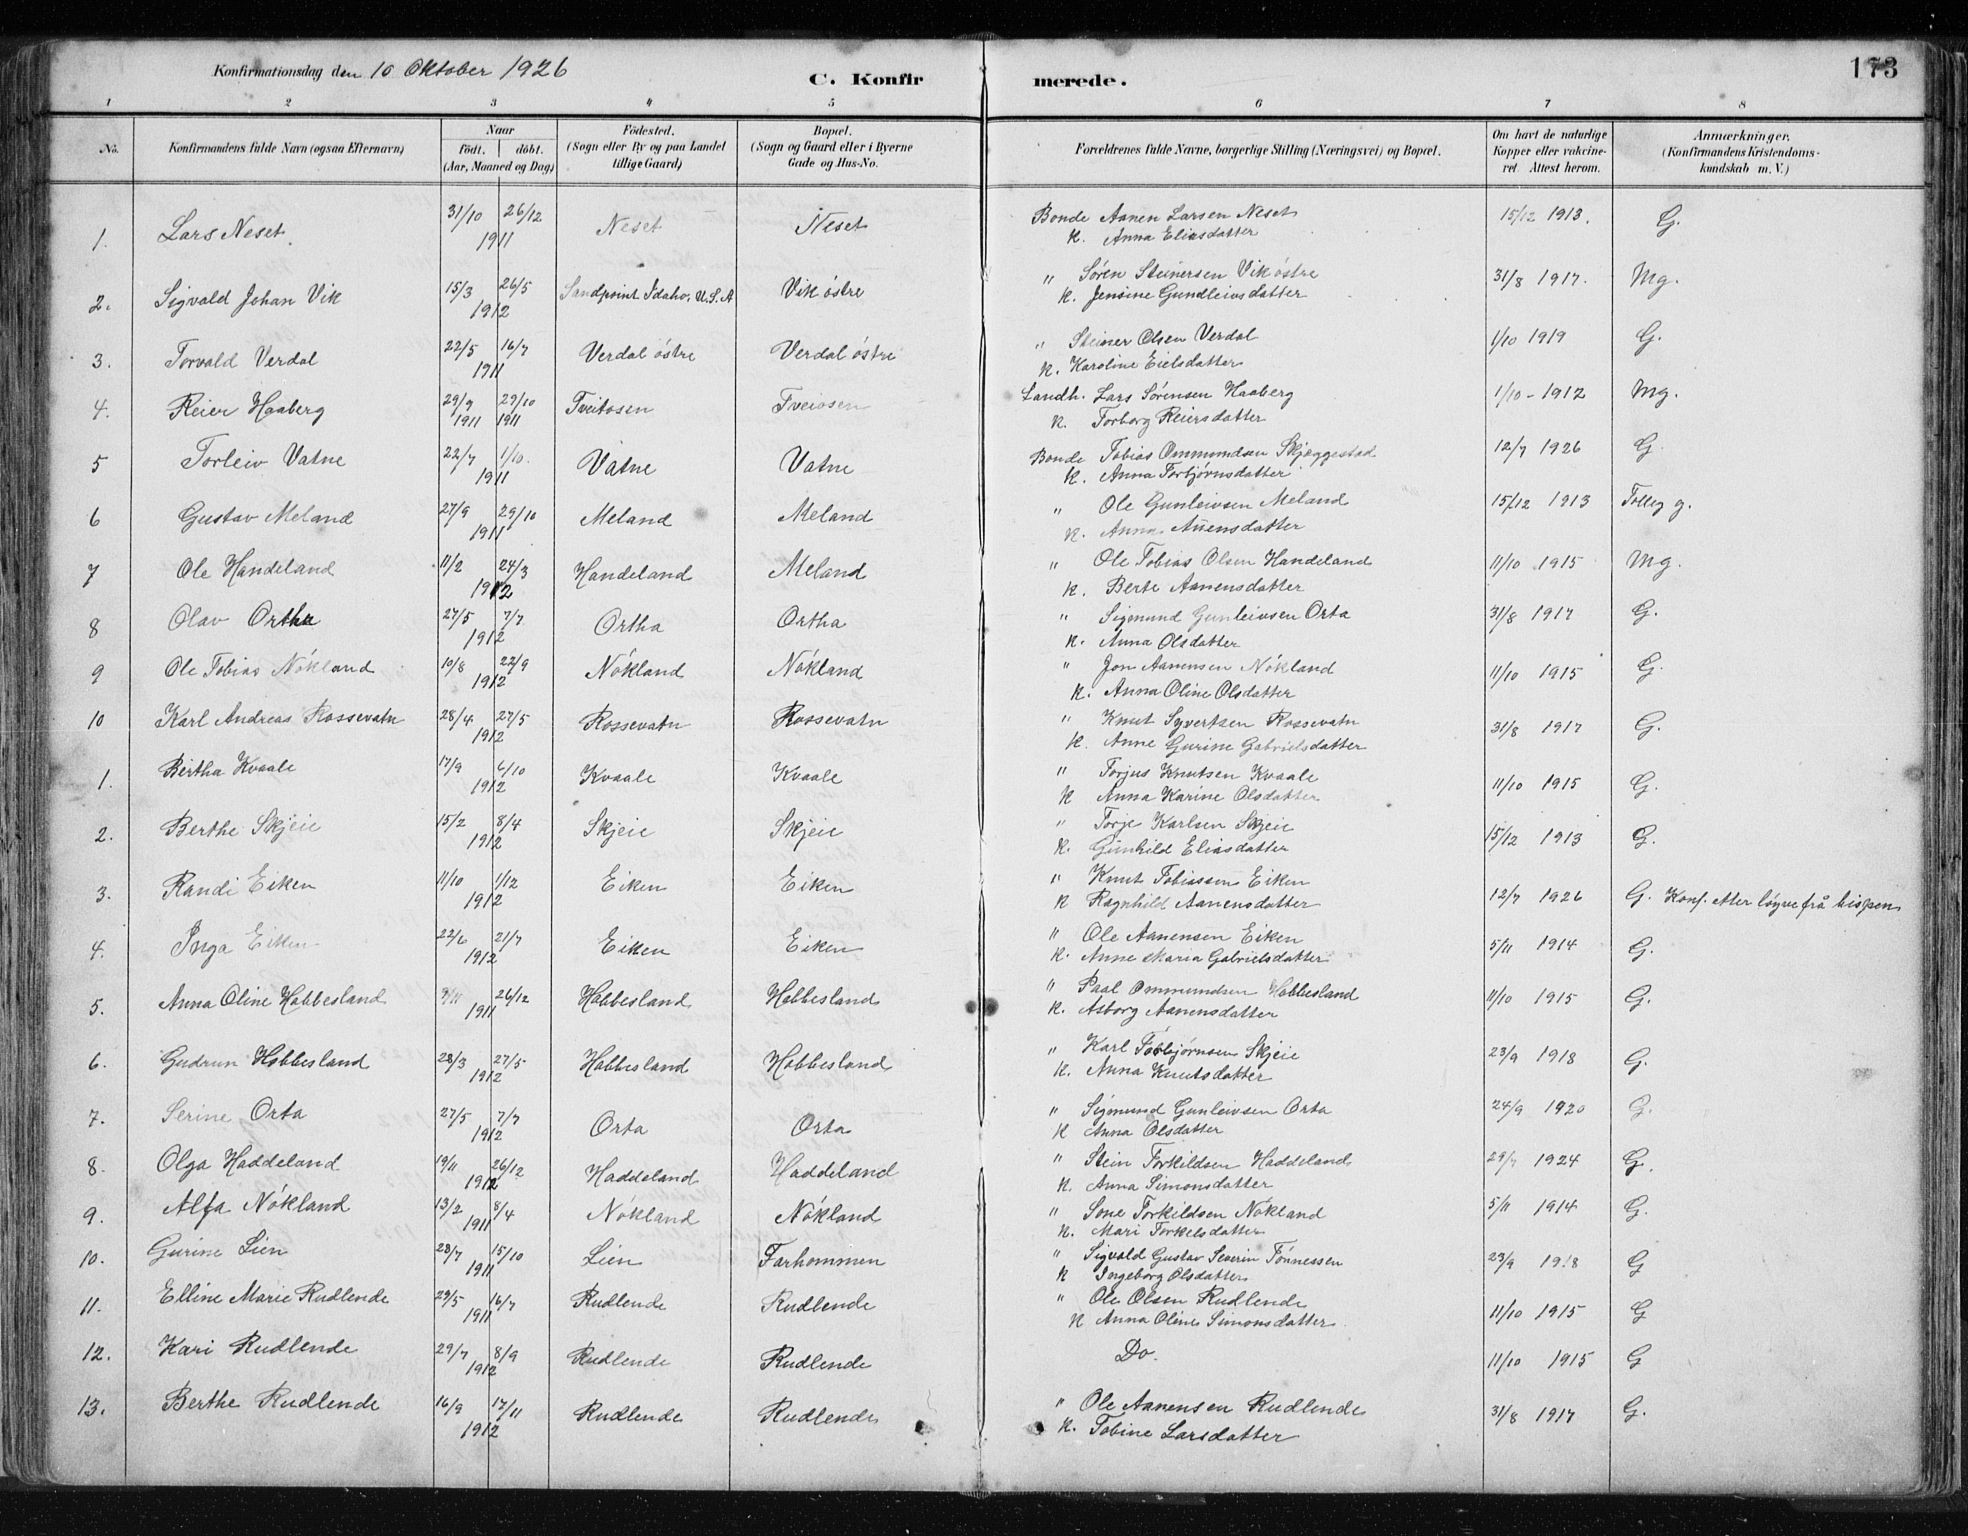 Konfirmationsdag den 10 Oktober 1926
C. Konfirmerede.
173
1 2 3 4 5 6 7 8
No. | Konfirmandens fulde Navn (ogsaa Efternavn) | Naar født. døbt. (Aar, Maaned og Dag) | Fødested. (Sogn eller By og paa Landet tillige Gaard) | Bopæl. (Sogn og Gaard eller i Byerne Gade og Hus-No. | Forældrenes fulde Navne, borgerlige Stilling (Næringsvei) og Bopæl. | Om havt de naturlige Kopper eller vakcineret Attest herom. | Anmærkninger. (Konfirmandens Kristendomskundskab m. V.)
1. Lars Neset 31/10 26/12 1911 Neset Neset Bonde Aanen Larsen Neset 15/12 1913. G.
K. Anna Eliasdatter
2. Sigvald Johan Vik 15/3 26/5 1912 Sandpoint Idaho, U.S.A Vik østre " Søren Steinersen Vik østre 31/8 1917. Mg.
K. Jensine Gundleivsdatter
3. Torvald Verdal 22/5 16/7 1911 Verdal østre Verdal østre " Steiner Olsen Verdal 1/10 1919 G.
K. Karoline Eielsdatter
4. Reier Haaberg 29/9 1911 29/10 1911 Tveitosen Tveiosen Landh. Lars Sørensen Haaberg 1/10 - 1912 Mg.
K. Torborg Reiersdatter
5 Torleiv Vatne 22/7 1/10. 1911 Vatne Vatne Bonde Tobias Ommundsen Skjeggestad 12/7 1926 G.
K. Anna Torbjørnsdatter
6 Gustav Meland 27/9 29/10 1911 Meland Meland " Ole Gunleivsen Meland 15/12 1913 g.
K. Anna
7 Ole Handeland 11/2 24/3 1912 Handeland Meland " Ole Tobias Olsen Handeland 11/10 1915 Mg.
K. Berte Aanensdatter
8 Olav Ortha 27/5 7/7 1912 Ortha Ortha " Sigmund Gunleivsen Orta 31/8 1917 G.
K. Anna Olsdatter
9 Ole Tobias Nökland 10/8 22/9 1912 Nökland Nökland " Jon Aanensen Nökland 11/10 1915 G.
K. Anna Oline Olsdatter
10 Karl Andreas Rossevatn 28/4 27/5 1912 Rossevatn Rossevatn " Knut Syvertsen Rossevatn 31/8 1917 G.
K. Anne Gurine Gabrielsdatter
1. Bertha Kvaale 17/9 6/10 1912 Kvaale Kvaale " Torjus Knutsen Kvaale 11/10 1915 G.
K Anna Karine Olsdatter
2. Berthe Skjeie 15/2 8/4 1912 Skjeie Skjeie " Torje Karlsen Skjeie 15/12 1913 G.
K. Gunhild Eliasdatter
3. Randi Eiken 11/10 1/12 1912 Eiken Eiken " Knut Tobiassen Eiken 12/7 1926 G. Konf. etter løyve frå bispen
K Ragnhild Aanensdatter
4. Inga Eiken 22/6 21/7 1912 Eiken Eiken " Ole Aanensen Eiken 5/11 1914 G.
K. Anne Maria Gabrielsdatter
5. Anna Oline Hobbesland 9/11 26/12 1911 Hobbesland Hobbesland " Paal Ommundsen Hobbesland 11/10 1915 G.
K. Asborg Aanensdatter
6. Gudrun Hobbesland 28/3 27/5 1912 Hobbesland Hobbesland " Karl Torbjørnsen Skjeie 23/9 1918 G.
K. Anna Knutsdatter
7. Serine Orta 27/5 7/7 1912 Orta Orta " Sigmund Gunleivsen Orta 24/9 1920 G.
K Anna Olsdatter
8. Olga Haddeland 19/11 26/12 1912 Haddeland Haddeland " Stein Torkildsen Haddeland 29/7 1924 G.
K. Anna Simonsdatter
9. Alfa Nökland 13/2 8/4 1911 Nökland Nökland " Sone Torkildsen Nökland 5/11 1914 G.
K. Mari Torkelsdatter
10. Gurine Lien 23/7 15/10 1911 Lien Farhommen " Sigvald Gustav Severin Tønnessen 23/9 1918 G
K Ingeborg Olsdatter
11. Elline Marie Rudlende 29/5 16/7 1911 Rudlende Rudlende " Ole Olsen Rudlende 11/10 1915 G
K Anna Oline Simonsdatter
12. Kari Rudlende 29/7 8/9 1912 Rudlende Rudlende Do. 11/10 1915 G
13. Berthe Rudlende 16/9 17/11 1912 Rudlende Rudlende " Ole Aanensen Rudlende 31/8 1917 G.
K. Tobine Larsdatter